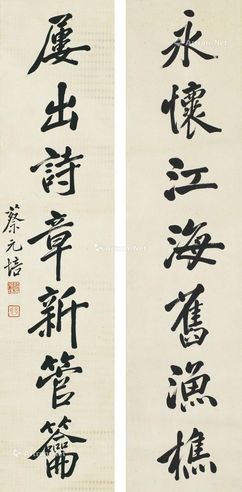 永懷江海舊漁樵
屢出詩章新管籥
蔡元培